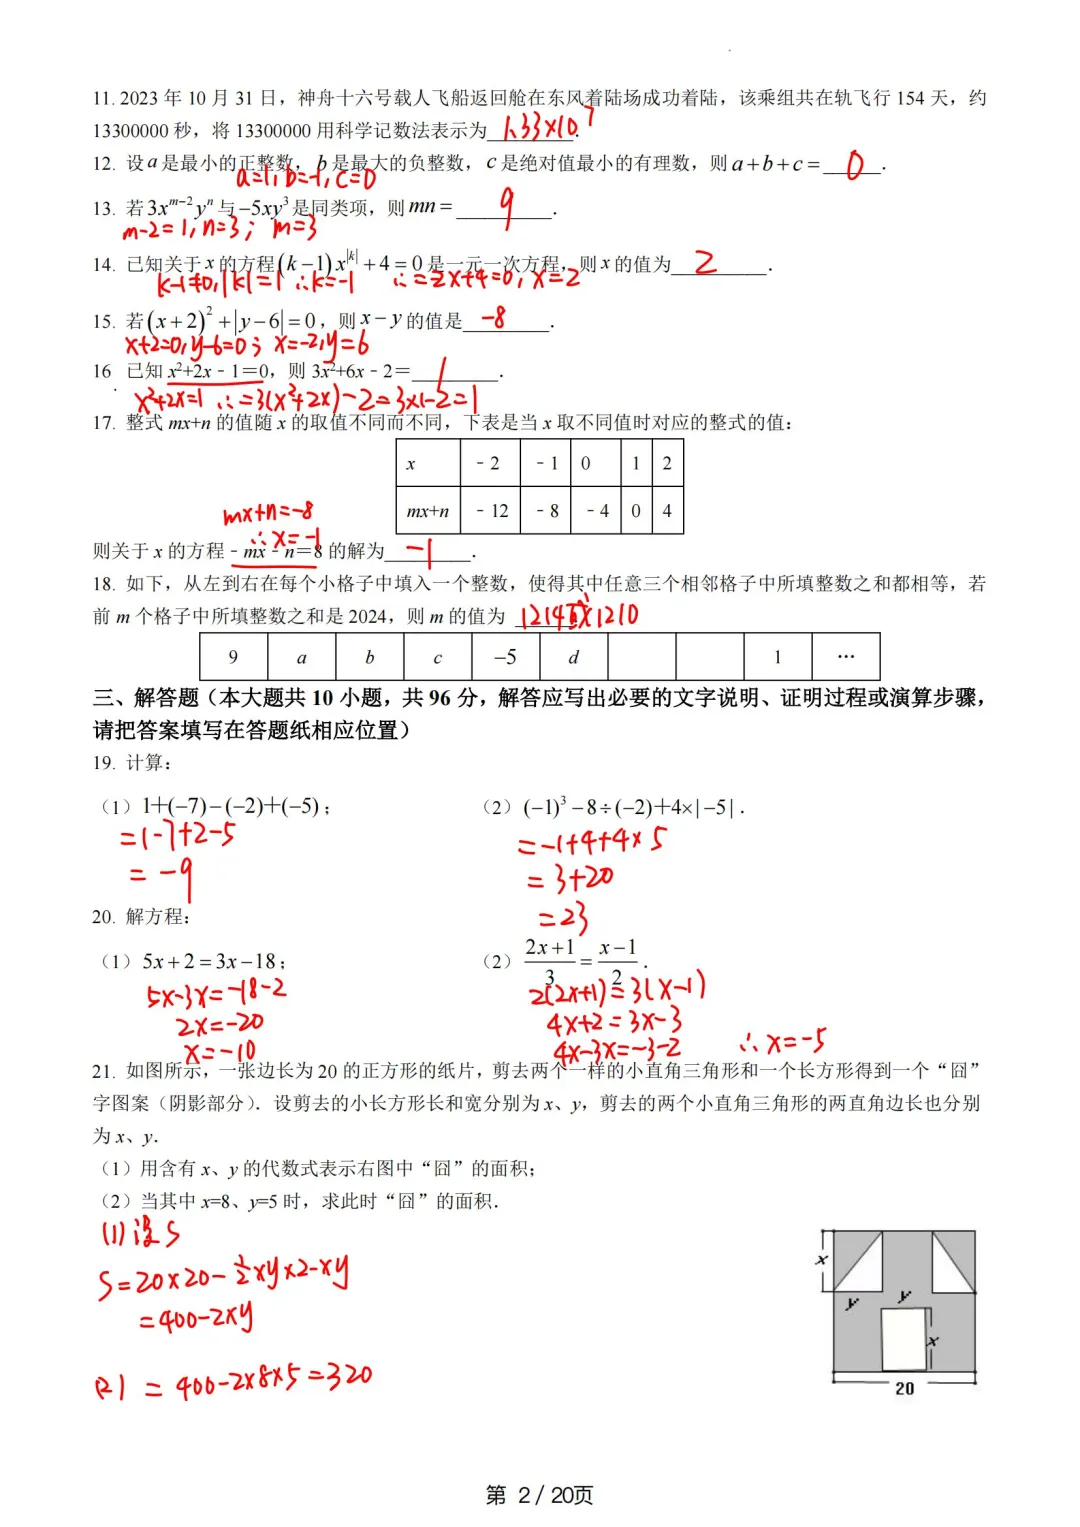 11. 2023 年 10 月 31 日，神舟十六号载人飞船返回舱在东风着陆场成功着陆，该乘组共在轨飞行 154 天，约
13300000 秒，将 13300000 用科学记数法表示为________. 1.33×10⁷
12. 设 a 是最小的正整数，b 是最大的负整数，c 是绝对值最小的有理数，则 a+b+c=______. 0
a=1, b=-1, c=0
13. 若 3xᵐ⁻²yⁿ 与 −5xy³ 是同类项，则 mn=__________. 9
m-2=1, n=3; m=3
14. 已知关于 x 的方程 (k−1)x^|k|+4=0 是一元一次方程，则 x 的值为__________. 2
k-1≠0, |k|=1 ∴k=-1 ∴=2x+4=0, x=2
15. 若 (x+2)²+|y−6|=0，则 x−y 的值是_________. -8
x+2=0, y-6=0; x=-2, y=6
16 已知 x²+2x﹣1＝0，则 3x²+6x﹣2＝_________. 1
.
x²+2x=1 ∴=3(x²+2x)-2=3×1-2=1
17. 整式 mx+n 的值随 x 的取值不同而不同，下表是当 x 取不同值时对应的整式的值：
x ﹣2 ﹣1 0 1 2
mx+n ﹣12 ﹣8 ﹣4 0 4
mx+n=-8
∴x=-1
则关于 x 的方程﹣mx﹣n＝8 的解为_________. -1
18. 如下，从左到右在每个小格子中填入一个整数，使得其中任意三个相邻格子中所填整数之和都相等，若
前 m 个格子中所填整数之和是 2024，则 m 的值为 ______ 1214或1210
9 a b c −5 d 1 …
三、解答题（本大题共 10 小题，共 96 分，解答应写出必要的文字说明、证明过程或演算步骤，
请把答案填写在答题纸相应位置）
19. 计算：
（1）1+(−7)−(−2)+(−5)； （2）(−1)³−8÷(−2)+4×|−5|．
=1-7+2-5
=-9
=-1+4+4×5
=3+20
=23
20. 解方程：
（1）5x+2=3x−18； （2）(2x+1)/3=(x−1)/2．
5x-3x=-18-2
2x=-20
x=-10
2(2x+1)=3(x-1)
4x+2=3x-3
4x-3x=-3-2 ∴x=-5
21. 如图所示，一张边长为 20 的正方形的纸片，剪去两个一样的小直角三角形和一个长方形得到一个“囧”
字图案（阴影部分）．设剪去的小长方形长和宽分别为 x、y，剪去的两个小直角三角形的两直角边长也分别
为 x、y．
（1）用含有 x、y 的代数式表示右图中“囧”的面积；
（2）当其中 x=8、y=5 时，求此时“囧”的面积．
(1)设S
S=20×20-½xy×2-xy
=400-2xy
(2) =400-2×8×5=320
x
y
y
x
20
第 2 / 20页